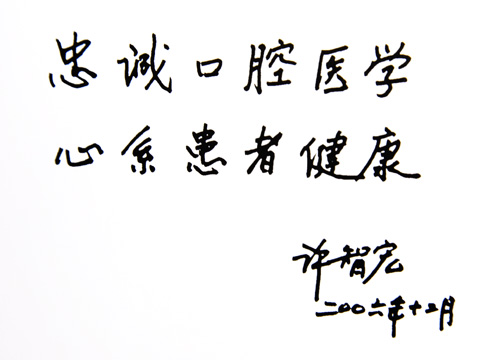 忠诚口腔医学
心系患者健康
许智宏
二〇〇六年十二月